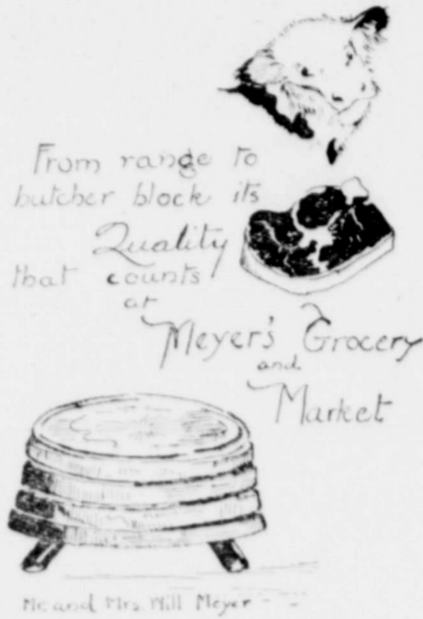 From range to
butcher block its
Quality
that counts
at
Meyer's Grocery
and
Market
Mr. and Mrs. Will Meyer - -